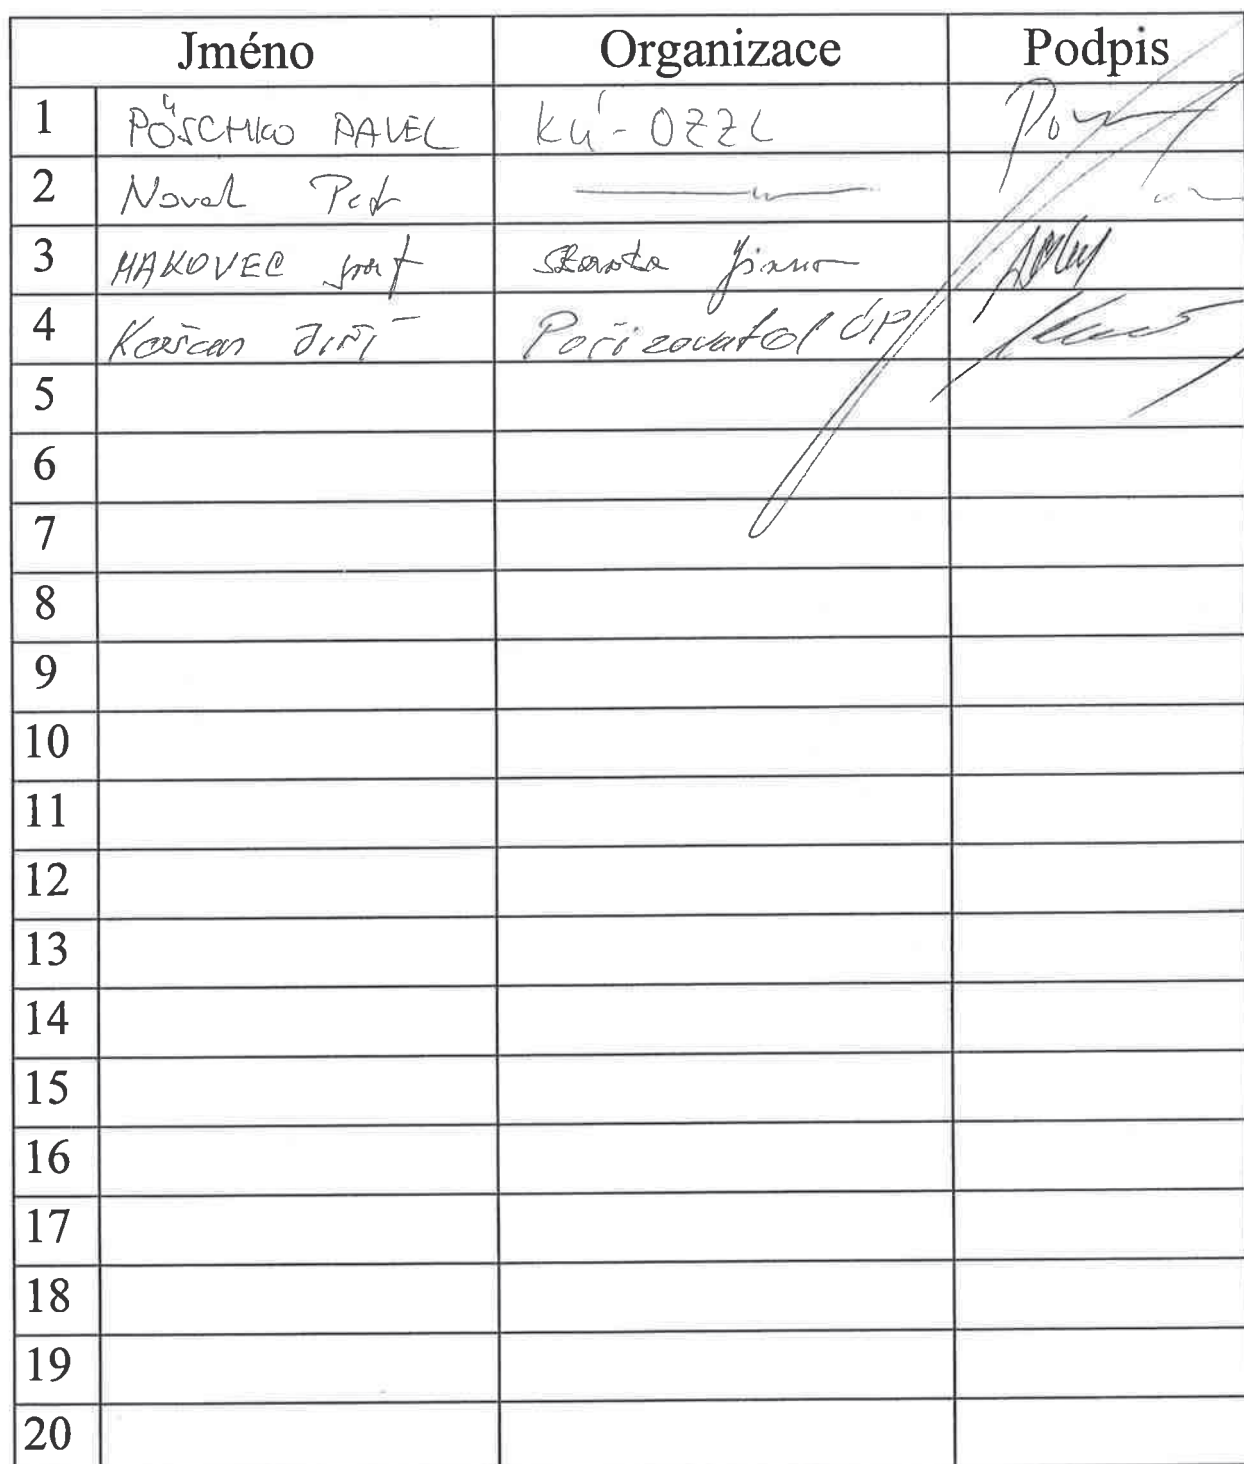 Jméno Organizace Podpis
1 PÖSCHKO PAVEL KÚ - OZZL
2 Novák Petr
3 MAKOVEC
4 JIŘÍ Pořizovatel ÚP
5
6
7
8
9
10
11
12
13
14
15
16
17
18
19
20